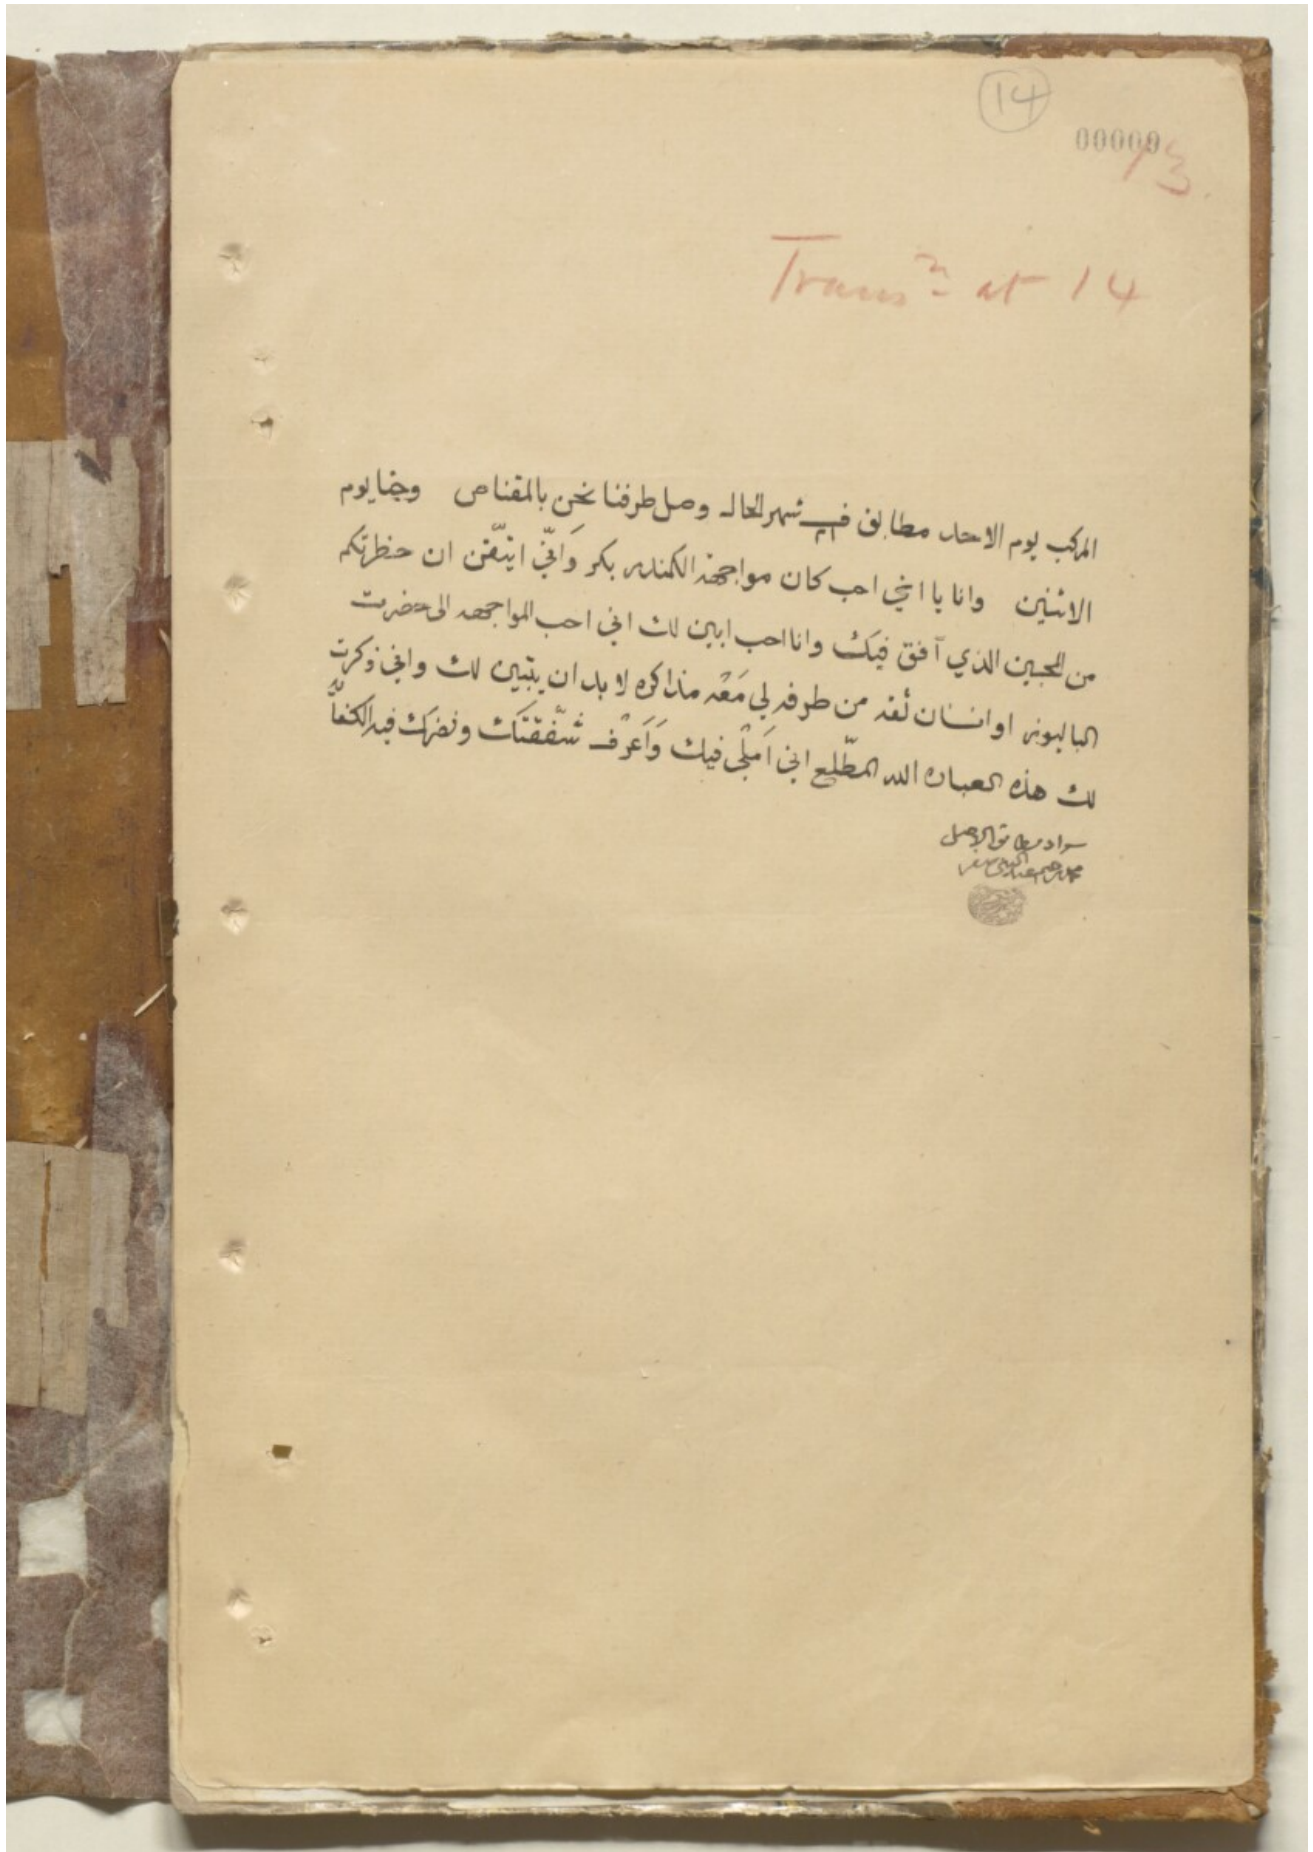 14
00000
13.
Transⁿ at 14
المركب يوم الاحد مطابق في شهر الحال وصل طرفنا نحن بالمقناص وجينا يوم
الاثنين وانا يا اخي احب كان مواجهة الكمندر بكر وَانّي اتيقّن ان حظرتكم
من المحبين الذي آفق فيك وانا احب ابين لك اني احب المواجهه الى حضرت
الباليوز او انسان ثقه من طرفه لي مَعْه مذاكره لا بد ان يتبين لك واني ذكرت
لك هذه العباره الله المطّلع اني اَمَلْي فيك وَاَعرْف شَفّقتَك ونضرك فيه الكفاّ
سواد مطابق الاصل
محمد رحيم عبد النبي صفر